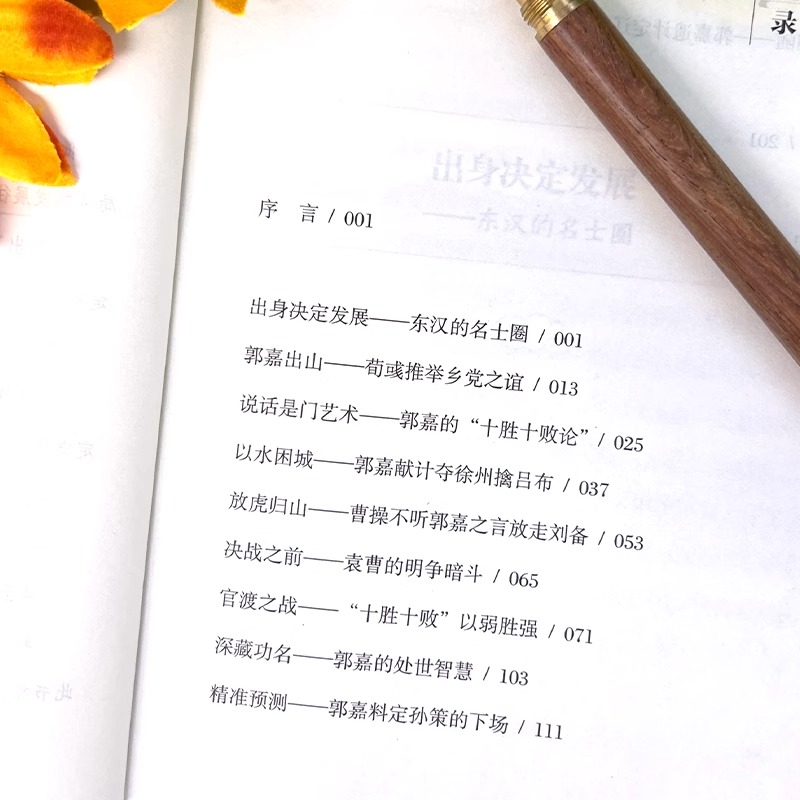 录
序 言 / 001
出身决定发展——东汉的名士圈 / 001
郭嘉出山——荀彧推举乡党之谊 / 013
说话是门艺术——郭嘉的“十胜十败论” / 025
以水困城——郭嘉献计夺徐州擒吕布 / 037
放虎归山——曹操不听郭嘉之言放走刘备 / 053
决战之前——袁曹的明争暗斗 / 065
官渡之战——“十胜十败”以弱胜强 / 071
深藏功名——郭嘉的处世智慧 / 103
精准预测——郭嘉料定孙策的下场 / 111
出身决定发展
——东汉的名士圈